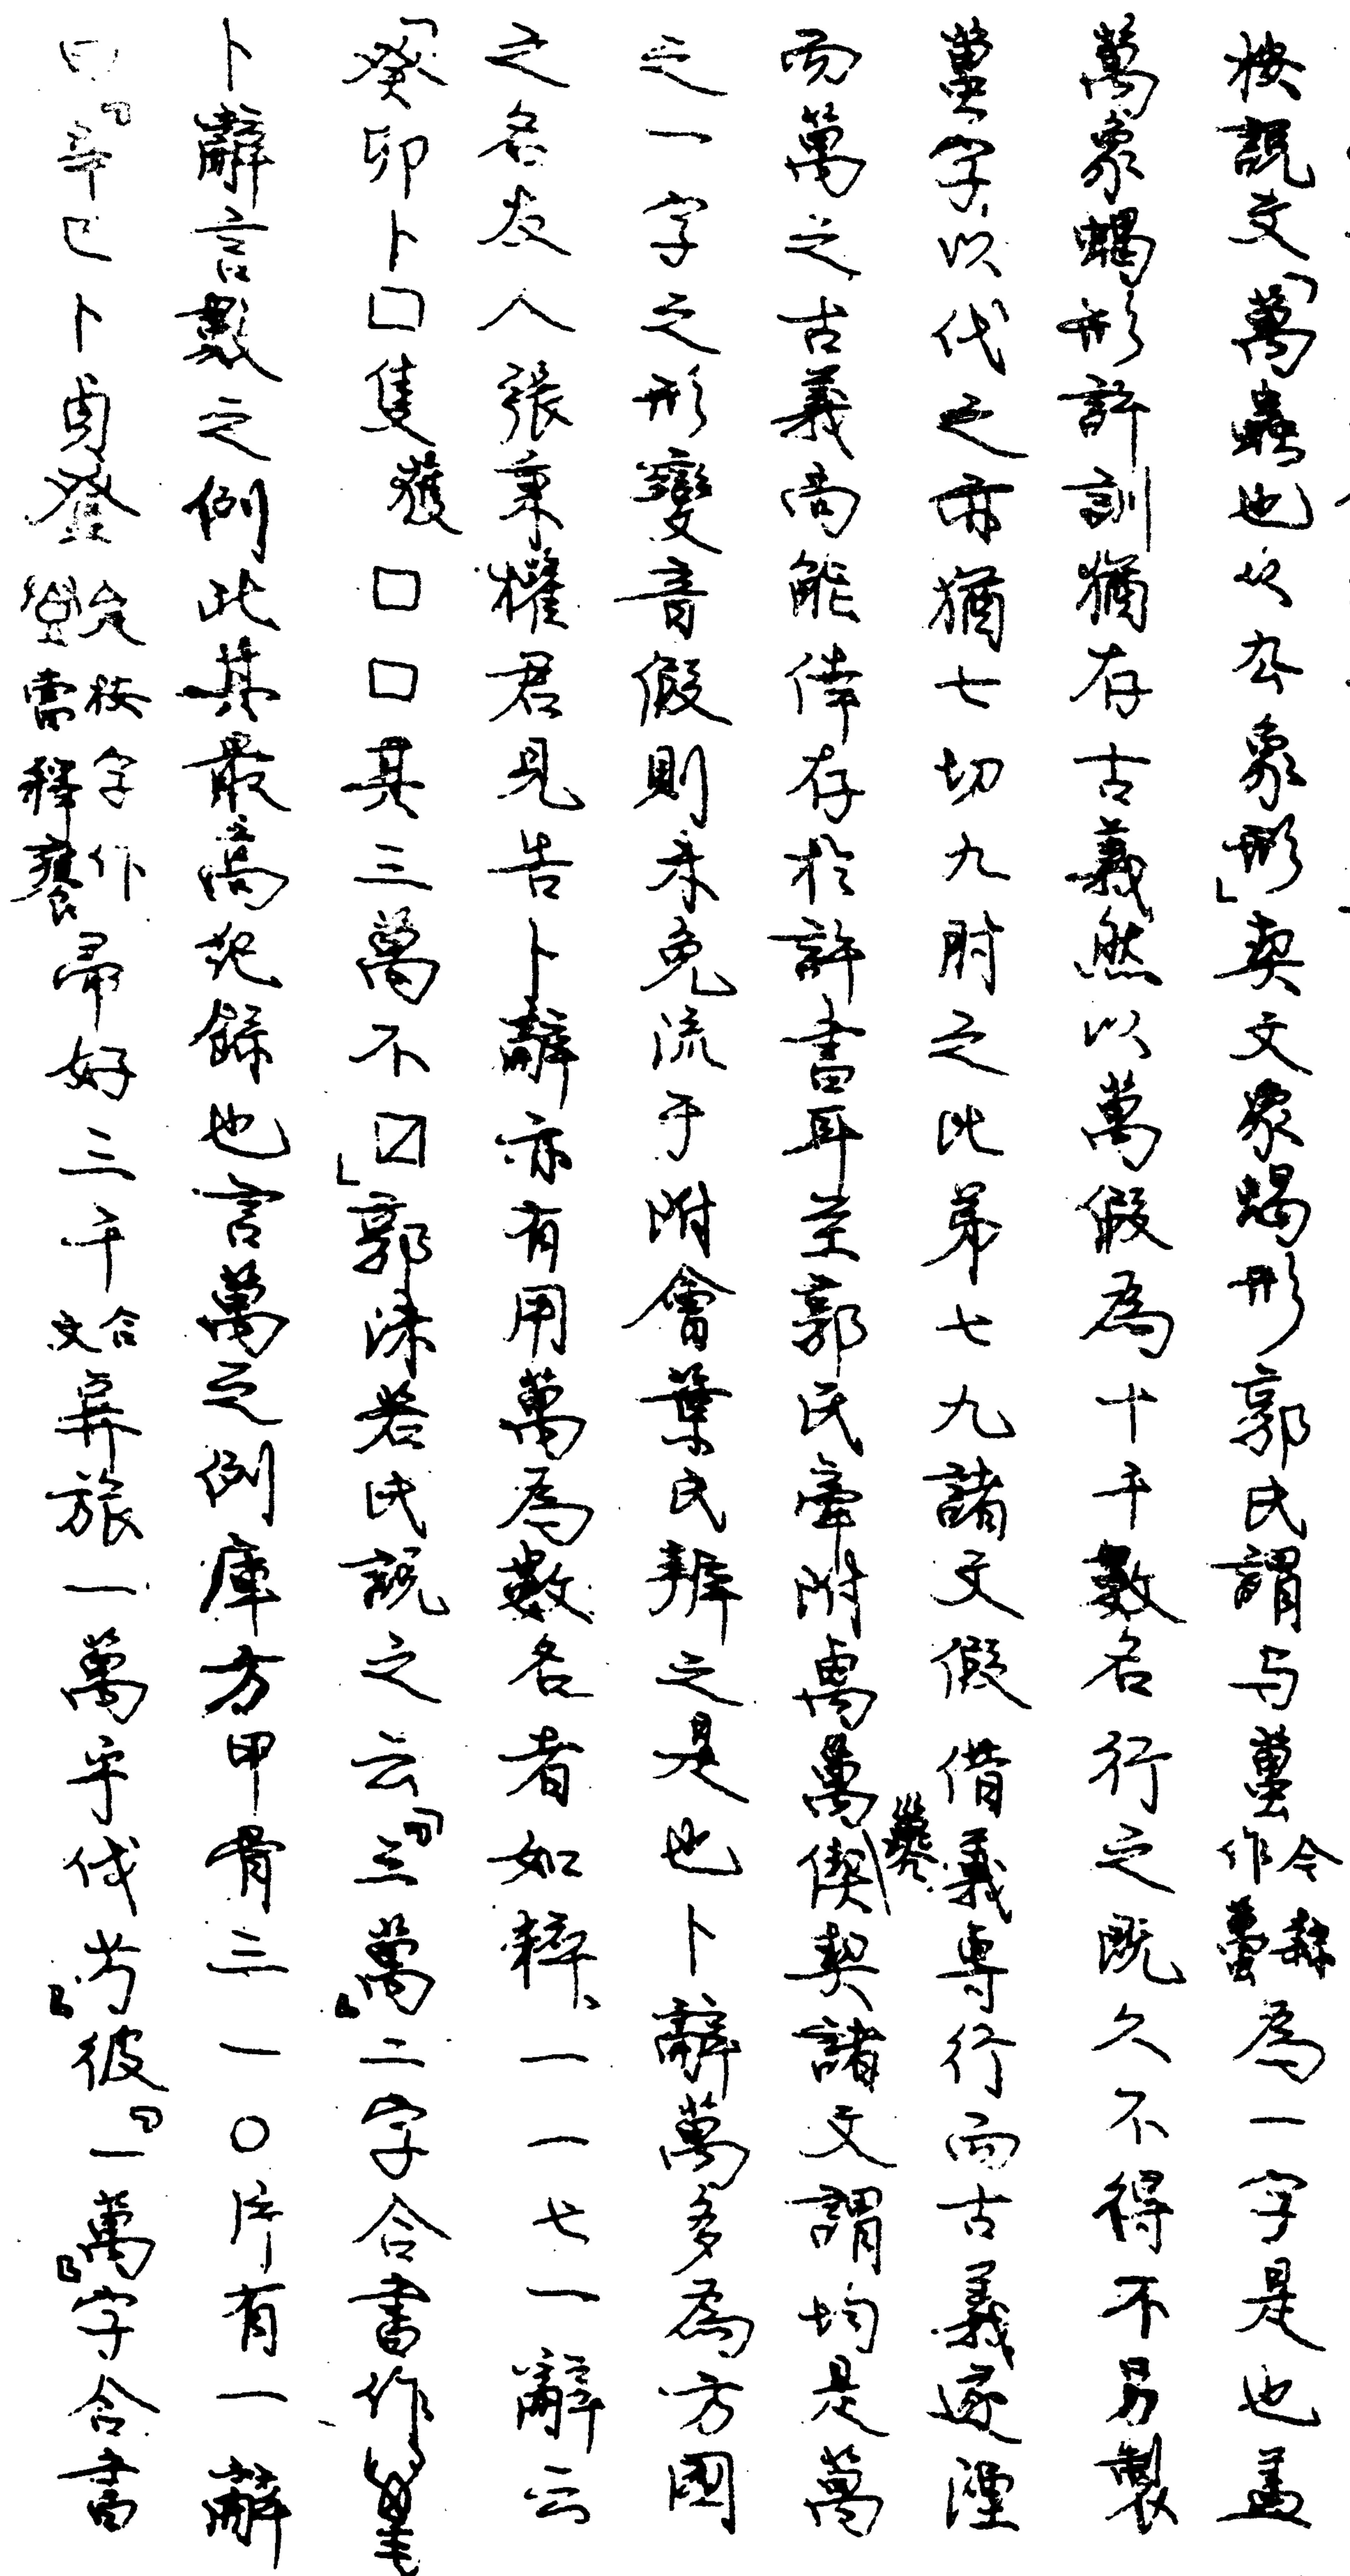 按說文「萬蟲也从厹象形」契文象蝎形郭氏謂与䘍今隸作蠆為一字是也蓋
萬象蝎形許訓猶存古義然以萬假為十千數名行之既久不得不另製
䘍字以代之亦猶七切九肘之比弟七九諸文假借義專行而古義遂湮
而萬之古義尚能倖存於許書耳至郭氏牽附禼萬偰契諸文謂均是萬
之一字之形變音假則未免流于附會葉氏辨之是也卜辭萬多為方國
之名友人張秉權君見告卜辭亦有用萬為數名者如粹、一一七一辭云
「癸卯卜□隻獲□□其三萬不□」郭沫若氏說之云「三萬」二字合書作
卜辭言數之例此其最高紀錄也言萬之例庫方甲骨三一〇片有一辭
曰「辛巳卜貞登帚好三千合文登旅一萬乎伐」彼「一萬」字合書